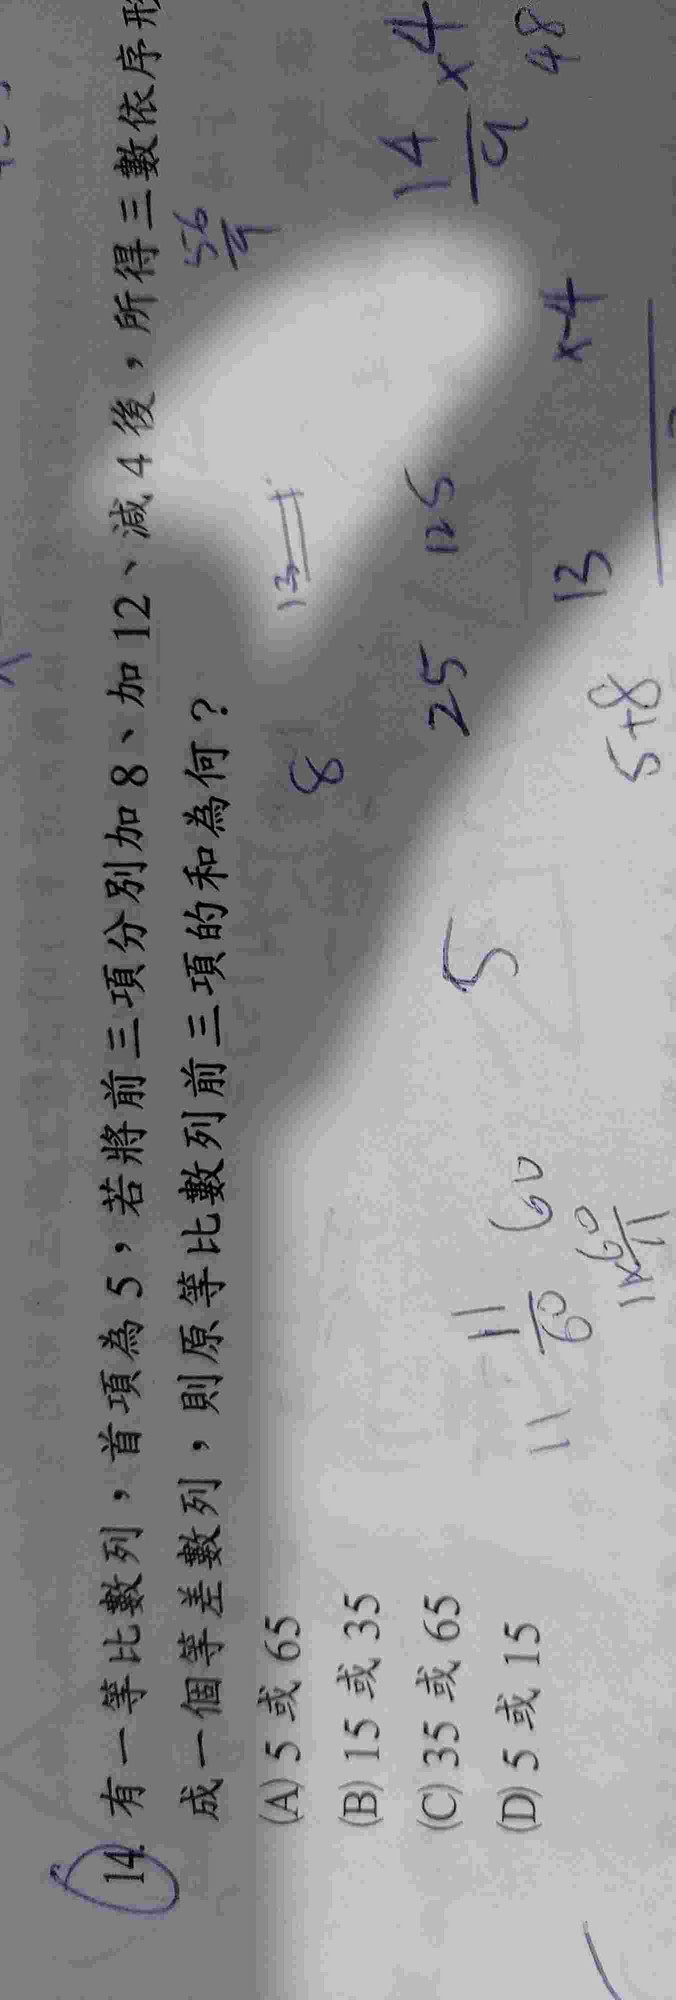 14. 有一等比數列，首項為5，若將前三項分別加8、加12、減4後，所得三數依序形
成一個等差數列，則原等比數列前三項的和為何？
(A) 5或65
(B) 15或35
(C) 35或65
(D) 5或15
56/9
14/9 ×4
48
13
8
5 25 125
13 ×4
5+8
11/60 60
11
11×60/11